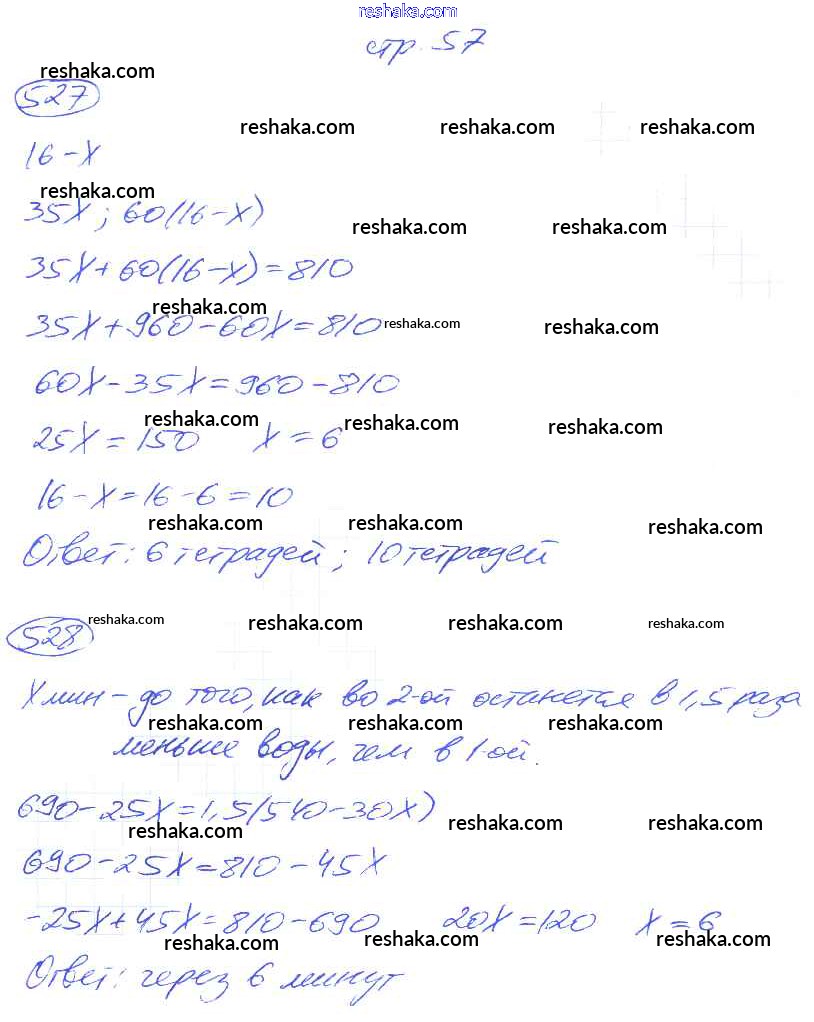 reshaka.com
стр. 57
reshaka.com
527
reshaka.com reshaka.com reshaka.com
16 - x
reshaka.com
35x ; 60(16 - x)
reshaka.com reshaka.com
35x + 60(16 - x) = 810
reshaka.com
35x + 960 - 60x = 810
reshaka.com reshaka.com
60x - 35x = 960 - 810
reshaka.com reshaka.com reshaka.com
25x = 150 x = 6
16 - x = 16 - 6 = 10
reshaka.com reshaka.com reshaka.com
Ответ: 6 тетрадей ; 10 тетрадей
reshaka.com reshaka.com reshaka.com reshaka.com
528
x мин - до того, как во 2-ой останется в 1,5 раза
reshaka.com reshaka.com reshaka.com
меньше воды, чем в 1-ой.
690 - 25x = 1,5(540 - 30x)
reshaka.com reshaka.com reshaka.com
690 - 25x = 810 - 45x
-25x + 45x = 810 - 690 20x = 120 x = 6
reshaka.com reshaka.com reshaka.com
Ответ: через 6 минут